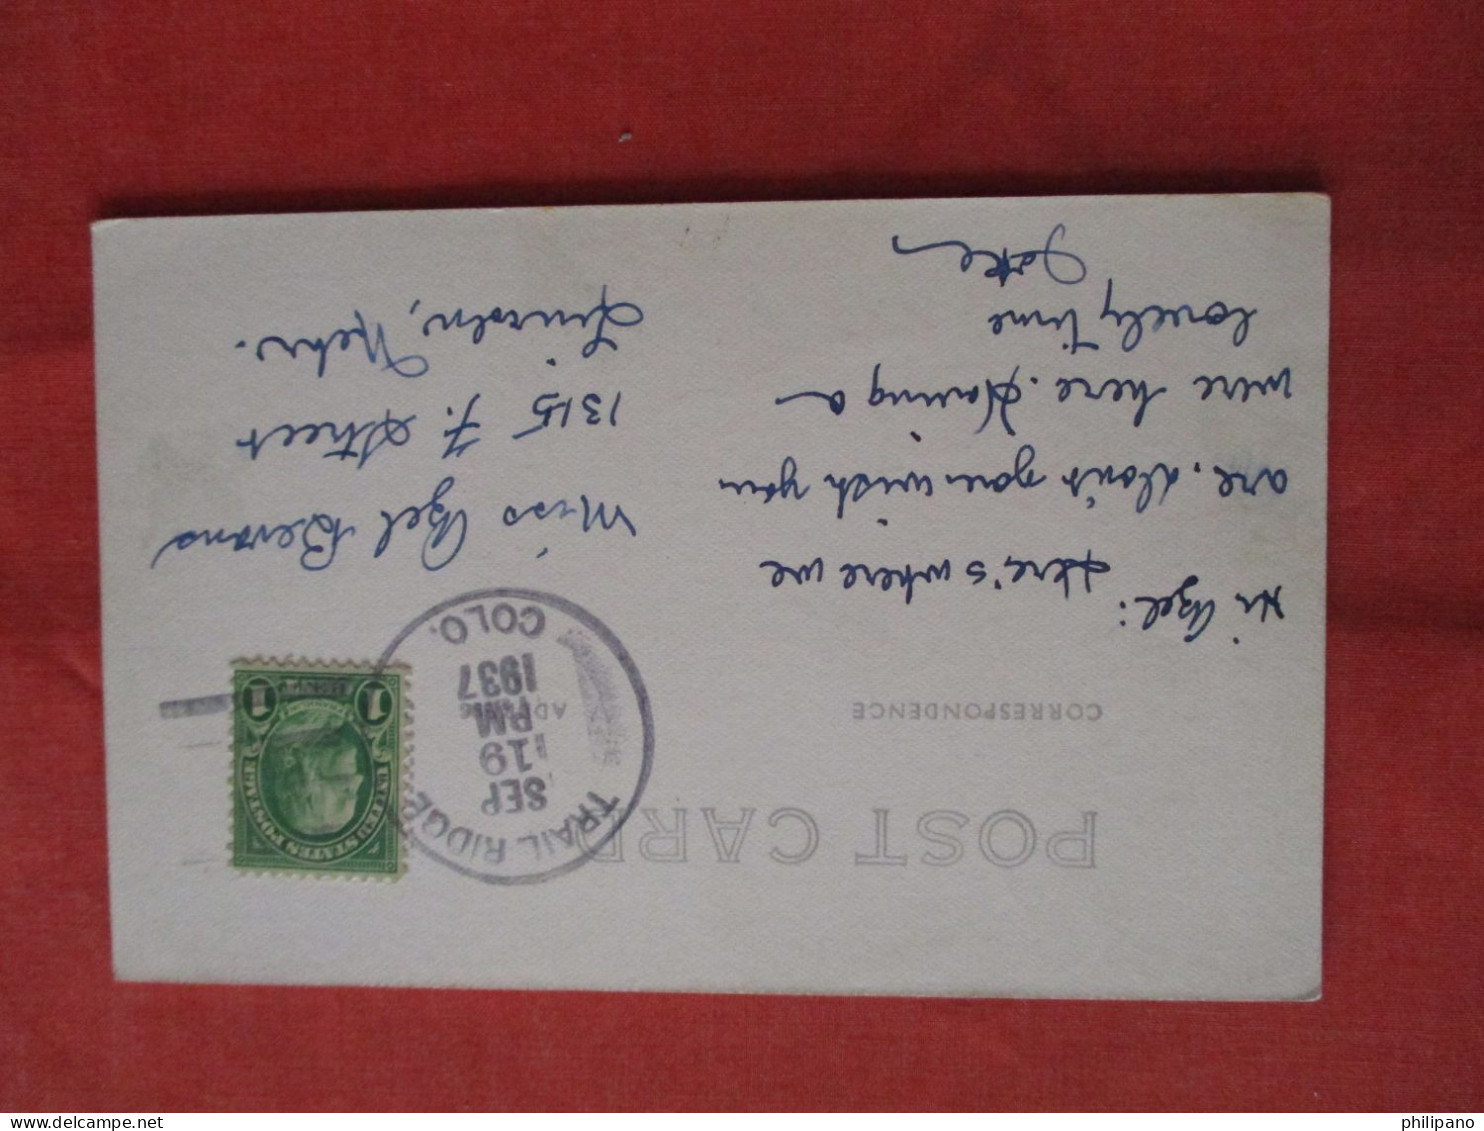 POST CARD
CORRESPONDENCE
Hi Azel:
Here's where we
are, don't you wish you
were here. Having a
lovely time
TRAIL RIDGE
SEP
19
PM
1937
COLO.
UNITED STATES POSTAGE
1 1
Miss Azel Bevans
1315 F. Street
Lincoln, Nebr.
philipano